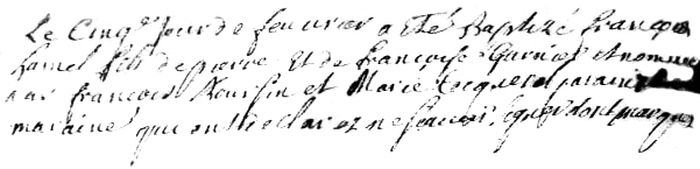 Le Cinqe Jour de feuvrier a Eté Baptizé françois
hamel fils de pierre Et de françoise Garnier Et nommé
par francois Roussin et Marie Cocquerel parain
maraine qui ont declarez ne scavoir signer dont marque